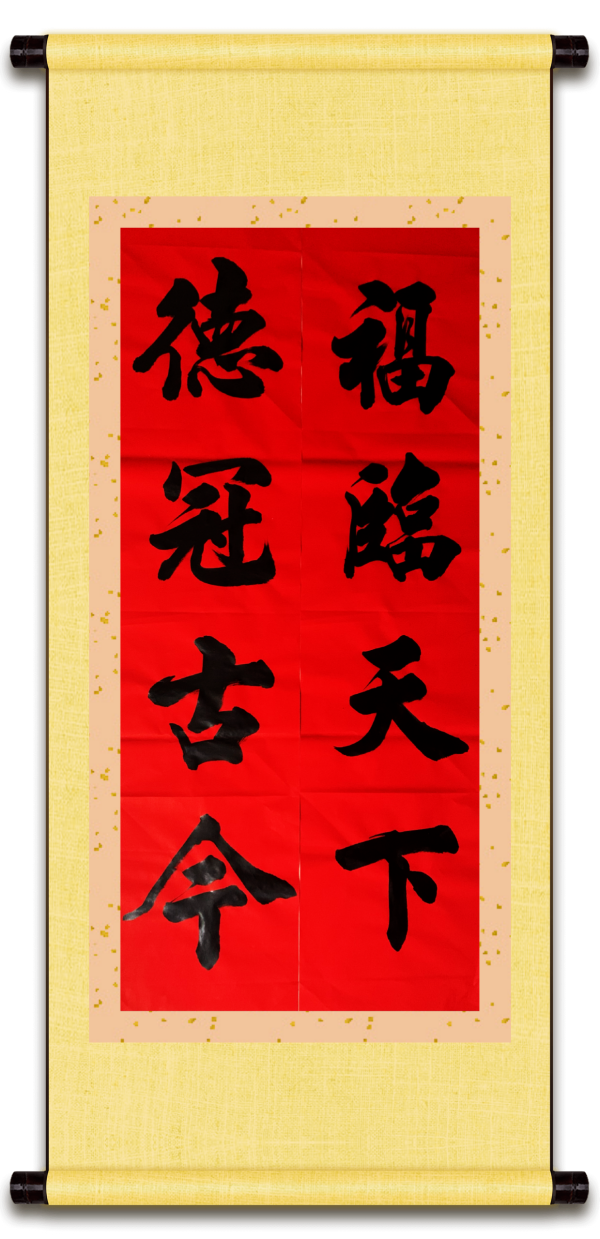 福臨天下
德冠古今